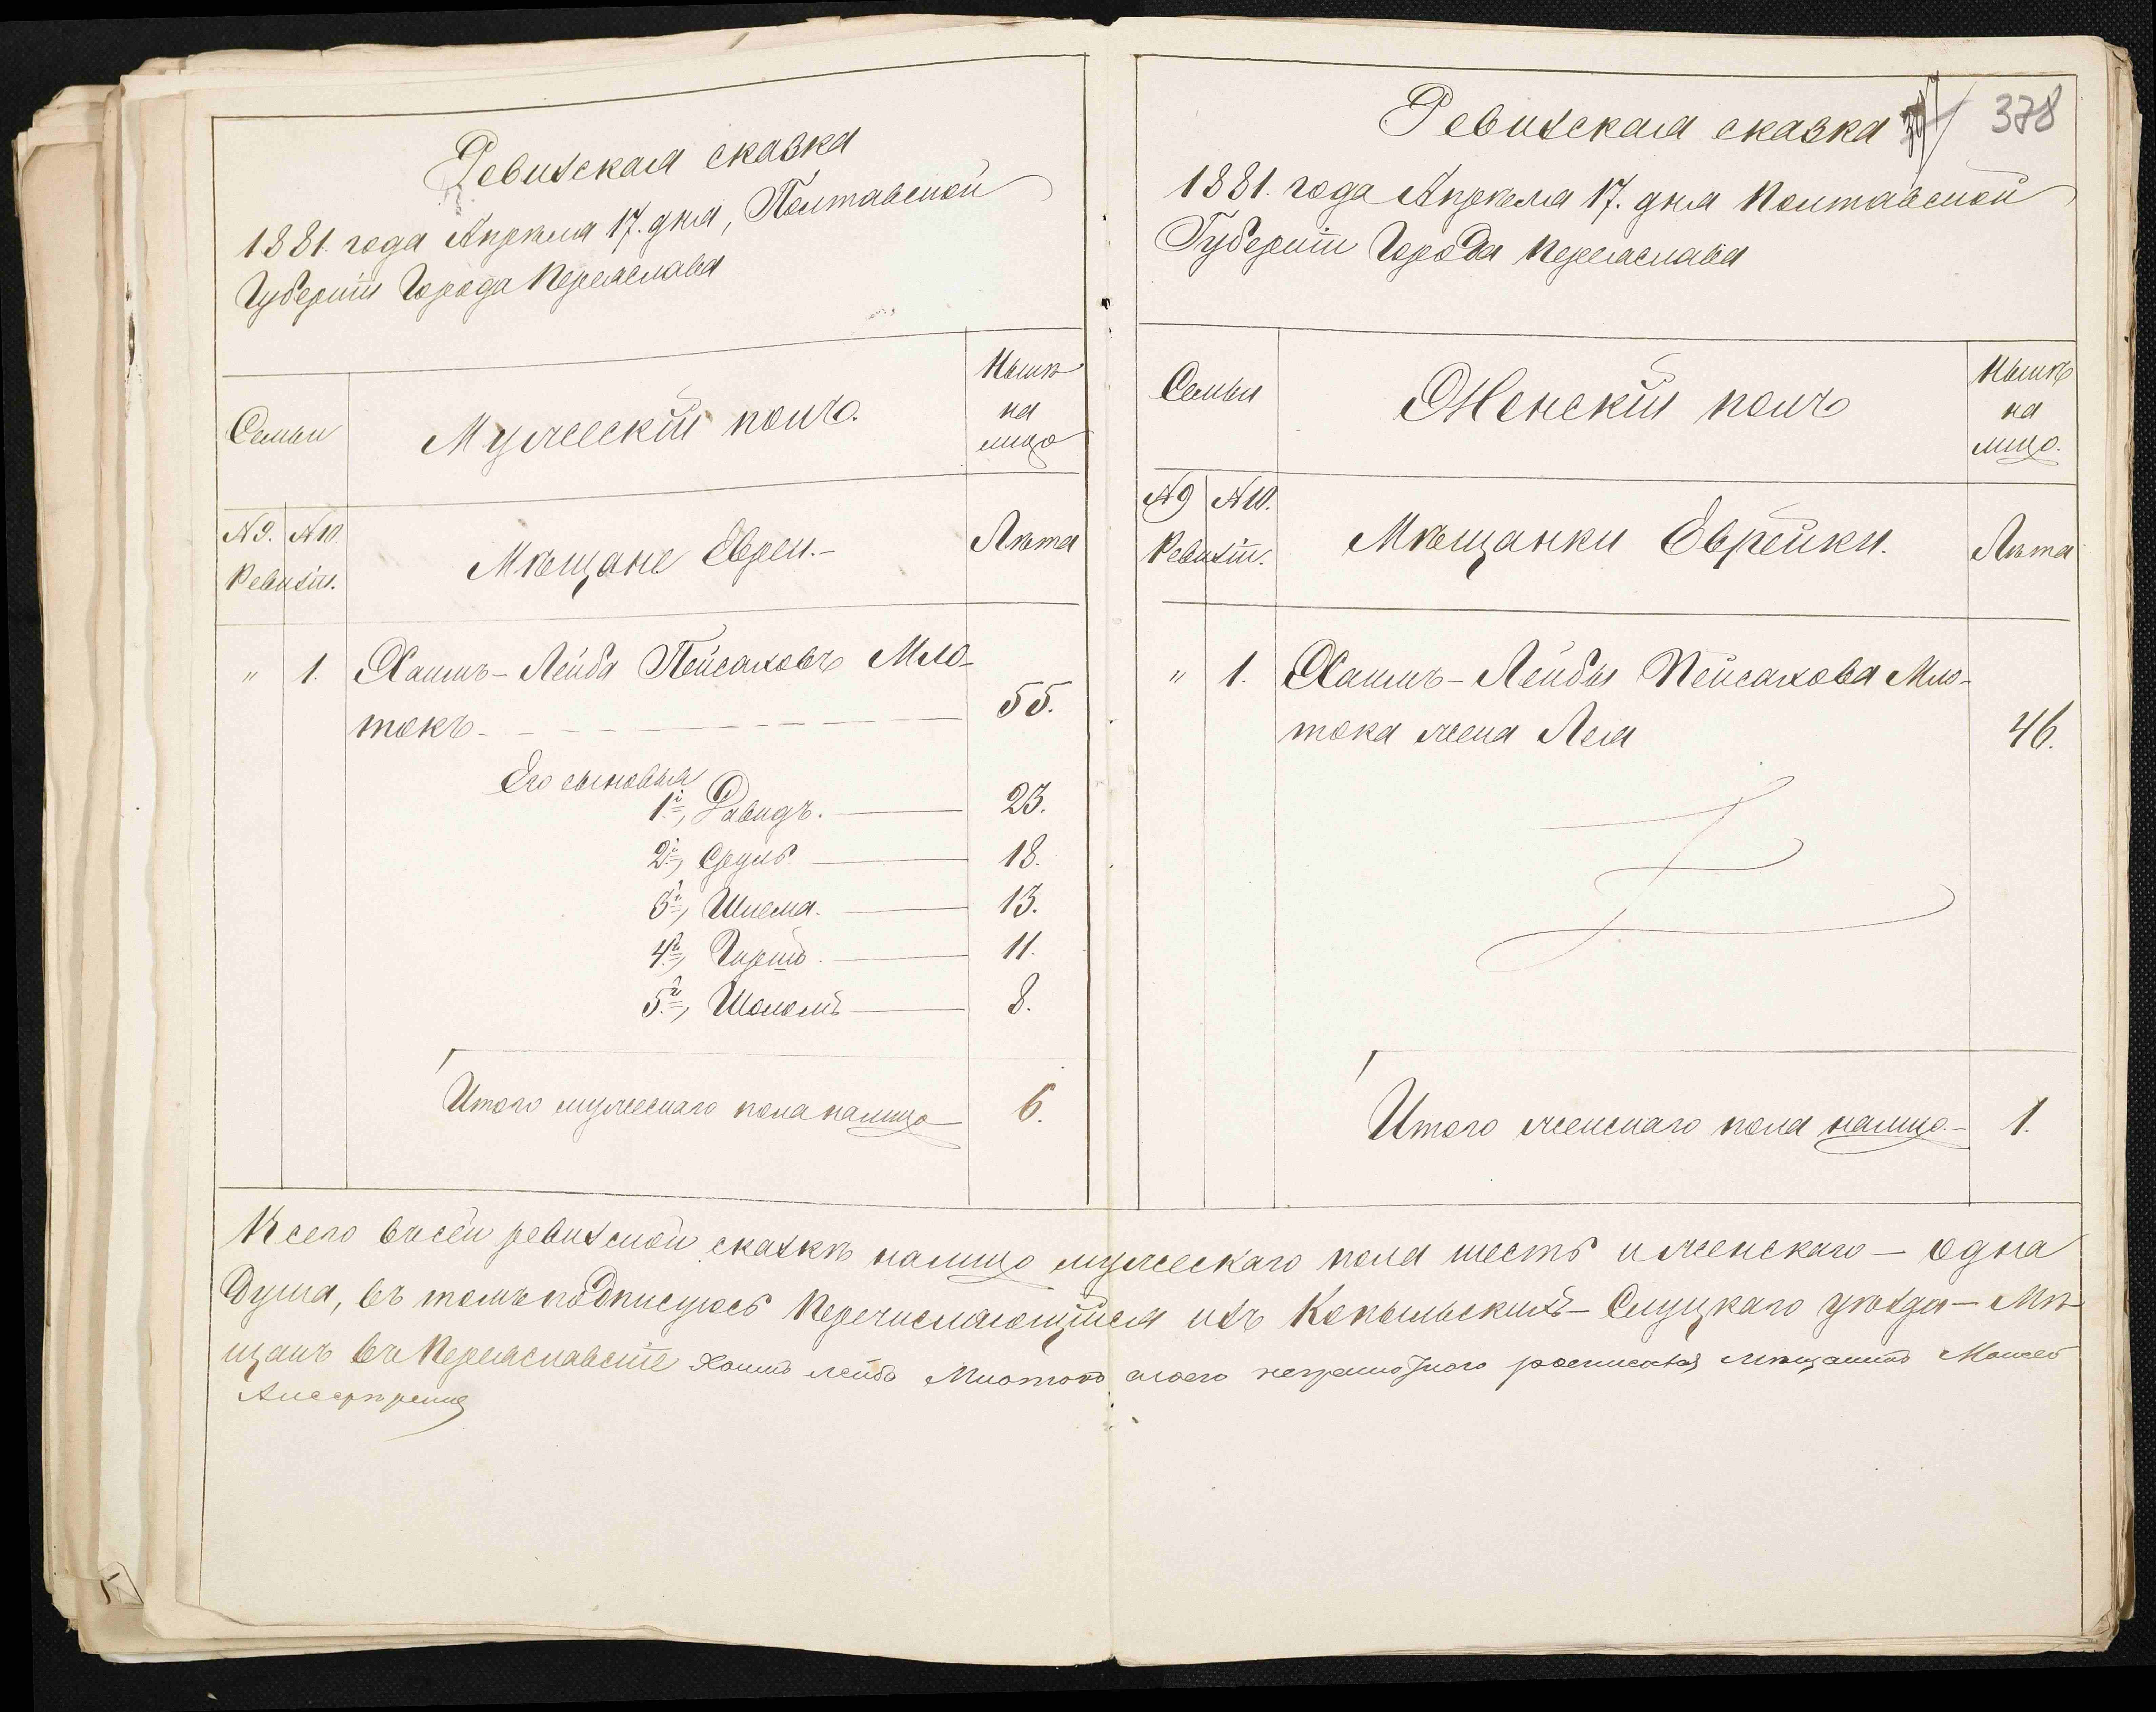 Ревизская сказка
1881. года Апрѣля 17. дня, Полтавской
Губерніи Города Переяслава
Семьи
Мужескій полъ.
Нынѣ
на
лицо
№ 9. № 10.
Ревизіи.
Мѣщане Евреи.-
Лѣта
" 1. Хаимъ-Лейба Пейсаховъ Мло-
токъ - 55.
Его сыновья
1й, Давидъ. 23.
2й, Сруль 18.
3й, Шлема. 13.
4й, Гиршъ. 11.
5й, Шоломъ 8.
Итого мужескаго пола налицо 6.
378
Ревизская сказка
1881. года Апрѣля 17. дня Полтавской
Губерніи Города Переяслава
Семьи
Женскій полъ
Нынѣ
на
лицо.
№ 9 № 10.
Ревизіи.
Мѣщанки Еврейки.
Лѣта
" 1. Хаимъ-Лейбы Пейсахова Мло-
тока жена Лея 46.
Итого женскаго пола налицо.- 1.
Всего въ сей ревизской сказкѣ налицо мужескаго пола шесть и женскаго - одна
душа, въ томъ подписуюсь Перечисляющійся изъ Копыльскихъ - Слуцкаго уѣзда - Мѣ-
щанъ въ Переяславскіе Хаимъ лейба Млотокъ а за его неграмотного росписался мѣщанинъ